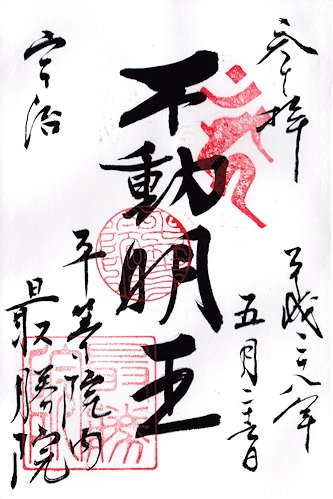 奉拝
平成二八年
五月二十五日
不動明王
宇治
平等院内
最勝院